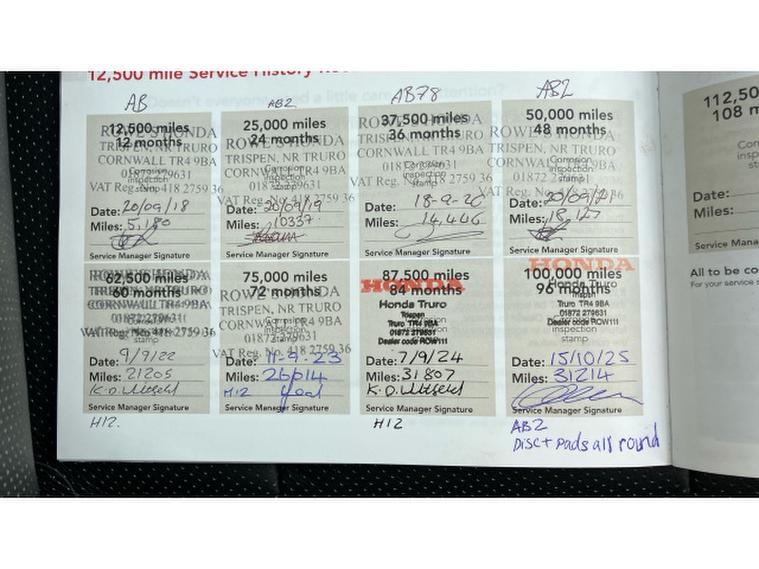 12,500 mile Service History
AB
12,500 miles
12 months
ROWE'S HONDA
TRISPEN, NR TRURO
CORNWALL TR4 9BA
01872 279631
VAT Reg. No. 418 2759 36
Corrosion
inspection
stamp
Date: 20/09/18
Miles: 5,180
Service Manager Signature
AB2
25,000 miles
24 months
ROWE'S HONDA
TRISPEN, NR TRURO
CORNWALL TR4 9BA
01872 279631
VAT Reg. No. 418 2759 36
Corrosion
inspection
stamp
Date: 20/09/19
Miles: 10337
Service Manager Signature
AB78
37,500 miles
36 months
ROWE'S HONDA
TRISPEN, NR TRURO
CORNWALL TR4 9BA
01872 279631
VAT Reg. No. 418 2759 36
Corrosion
inspection
stamp
Date: 18-9-20
Miles: 14,446
Service Manager Signature
AB2
50,000 miles
48 months
ROWE'S HONDA
TRISPEN, NR TRURO
CORNWALL TR4 9BA
01872 279631
VAT Reg. No. 418 2759 36
Corrosion
inspection
stamp
Date: 20/09/21
Miles:
Service Manager Signature
62,500 miles
60 months
ROWE'S HONDA
TRISPEN, NR TRURO
CORNWALL TR4 9BA
01872 279631
VAT Reg. No. 418 2759 36
stamp
Date: 9/9/22
Miles: 21205
Service Manager Signature
H12.
75,000 miles
72 months
ROWE'S HONDA
TRISPEN, NR TRURO
CORNWALL TR4 9BA
01872 279631
VAT Reg. No. 418 2759 36
Corrosion
inspection
stamp
Date: 11-9-23
Miles: 26614
H12
Service Manager Signature
87,500 miles
84 months
HONDA
Honda Truro
Trispen
Truro TR4 9BA
01872 279631
Dealer code ROW111
stamp
Date: 7/9/24
Miles: 31807
Service Manager Signature
H12
100,000 miles
96 months
HONDA
Honda Truro
Trispen
Truro TR4 9BA
01872 279631
Dealer code ROW111
stamp
Date: 15/10/25
Miles: 31214
Service Manager Signature
AB2
Disc + Pads all round
112,50
108 m
Date:
Miles:
Service Mana
All to be co
For your service